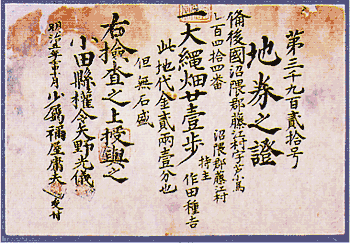 第三千九百貳拾号
地券之證
備後國沼隈郡藤江村字戸小島
百四拾四番
沼隈郡藤江村
持主
作田種吉
一大縄畑廿壹歩
此地代金貳兩壹分也
但無石盛
右撿査之上授與之
小田縣權令矢野光儀
明治五年